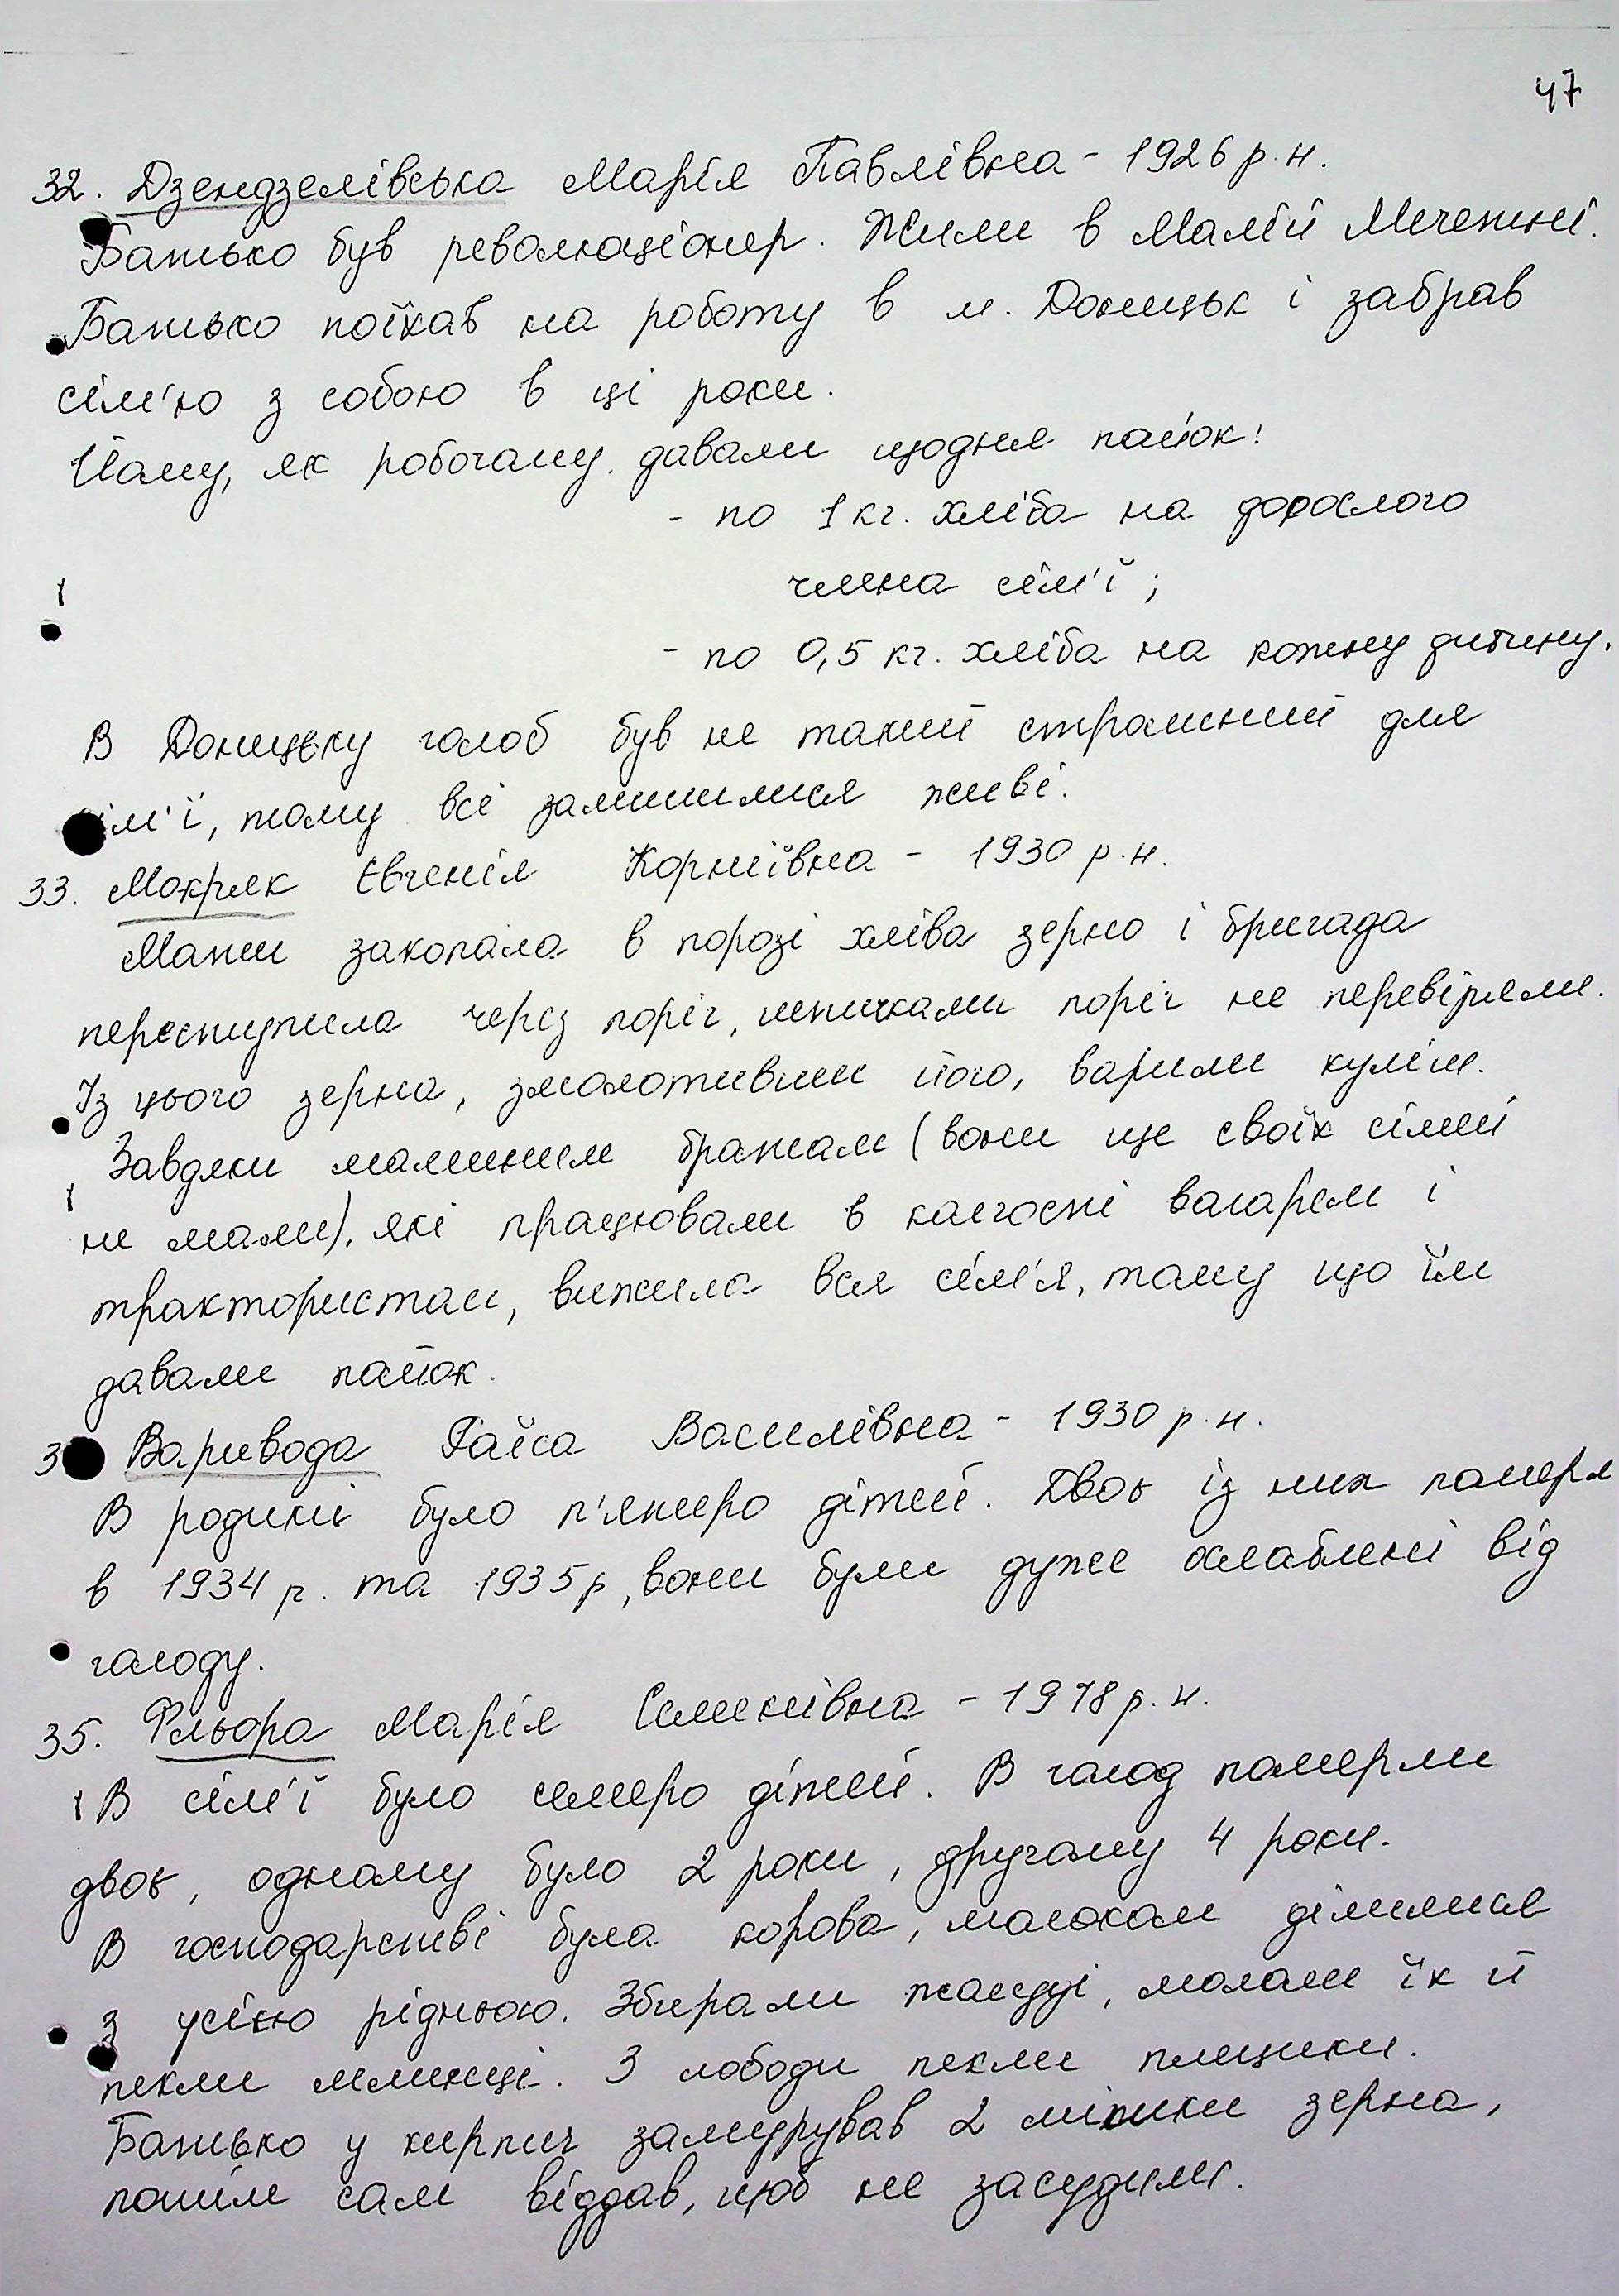 47
32. Дзендзелівська Марія Павлівна - 1926 р. н.
Батько був революціонер. Жили в Малій Мечетні.
Батько поїхав на роботу в м. Донецьк і забрав
сім'ю з собою в ці роки.
Йому, як робочому давали щодня пайок:
- по 1 кг. хліба на дорослого
члена сім'ї;
- по 0,5 кг. хліба на кожну дитину.
В Донецьку голод був не такий страшний для
ім'ї, тому всі залишилися живі.
33. Мокряк Євгенія Корніївна - 1930 р. н.
Мати закопала в порозі хліва зерно і бригада
переступила через поріг, шпичками поріг не перевіряли.
Із цього зерна, змолотивши його, варили куліш.
Завдяки маминим братам (вони ще своїх сімей
не мали), які працювали в колгоспі вагарем і
трактористом, вижила вся сім'я, тому що їм
давали пайок.
3 Варивода Раїса Василівна - 1930 р. н.
В родині було п'ятеро дітей. Двоє із них померли
в 1934 р. та 1935 р, вони були дуже ослаблені від
голоду.
35. Фльора Марія Семенівна - 1918 р. н.
В сім'ї було семеро дітей. В голод померли
двоє, одному було 2 роки, другому 4 роки.
В господарстві була корова, молоком ділилися
з усією ріднею. Збирали жолуді, мололи їх й
пекли млинці. З лободи пекли плецики.
Батько у кирпич замурував 2 мішки зерна,
потім сам віддав, щоб не засудили.